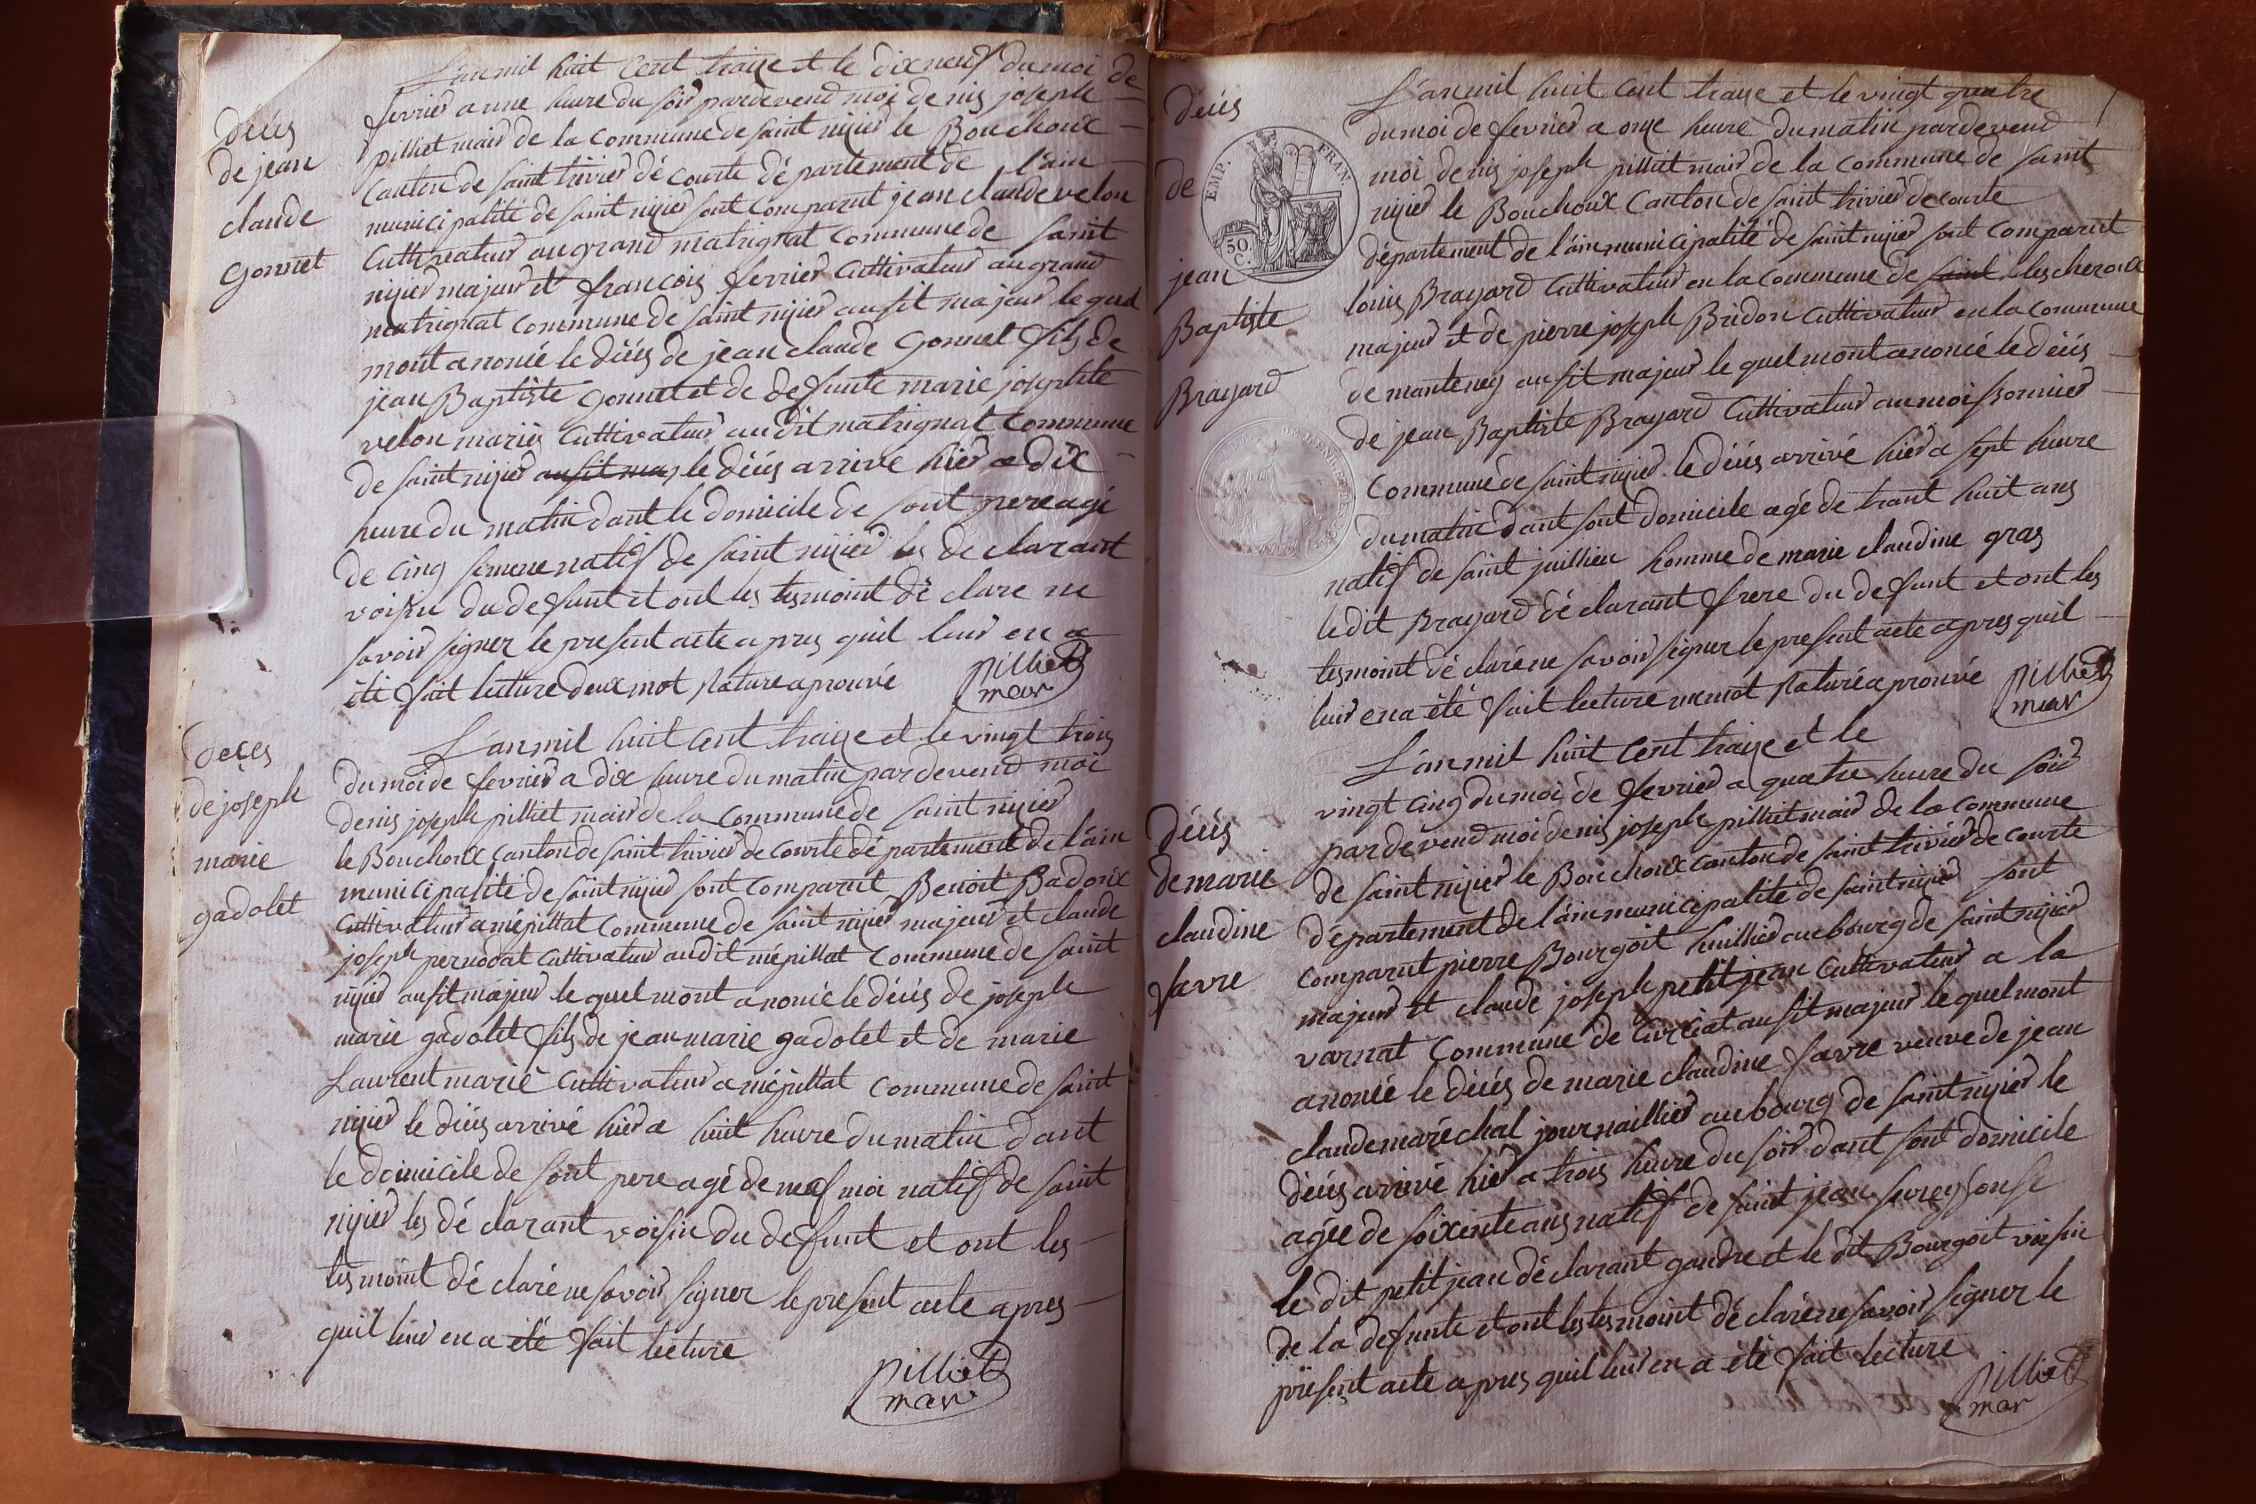 décés
de jean
claude
gonnet
L'an mil huit cent traize et le dix neuf du moi de
fevrier a une heure du soir pardevend moi denis joseph
pilliet mair de la commune de saint nizier le Bouchoux
canton de saint trivier de courte département de l'ain
municipalité de saint nizier sont comparut jean claude velon
cultivateur au grand matrignat commune de saint
nizier majeur et françois ferrier cultivateur au grand
matrignat commune de saint nizier ausit majeur le quel
mont anoncé le décés de jean claude gonnet fils de
jean Baptiste gonnet et de defunte marie josephte
velon mariés cultivateur au dit matrignat commune
de saint nizier ausit maj le décés arrivé hier a dix
heure du matin dant le domicile de sont pere agé
de cinq semene natif de saint nizier les declarant
voisin du defunt et ont les tesmoint déclare ne
savoir signer le present acte apres quil leur en a
été fait lecture deux mot rature aprouvé
pilliet
mair
deces
de joseph
marie
gadolet
L'an mil huit cent traize et le vingt trois
du moi de fevrier a dix heure du matin pardevend moi
denis joseph pilliet mair de la commune de saint nizier
le Bouchoux canton de saint trivier de courte département de l'ain
municipalité de saint nizier sont comparut Benoit Badoux
cultivateur a mépillat commune de saint nizier majeur et claude
joseph pernodat cultivateur au dit mépillat commune de saint
nizier ausit majeur le quel mont anoncé le décés de joseph
marie gadolet fils de jean marie gadolet et de marie
Laurent marié cultivateur a mépillat commune de saint
nizier le décés arrivé hier a huit heure du matin dant
le domicile de sont pere agé de neuf moi natif de saint
nizier les déclarant voisin du defunt et ont les
tesmoint déclaré ne savoir signer le present acte apres
quil leur en a été fait lecture
pilliet
mair
décés
de
jean
Baptiste
Brayard
EMP. FRAN.
50. C.
L'an mil huit cent traize et le vingt quatre
du moi de fevrier a onze heure du matin pardevend
moi denis joseph pilliet mair de la commune de saint
nizier le Bouchoux canton de saint trivier de courte
département de l'ain municipalité de saint nizier sont comparut
louis Brayard cultivateur en la commune de saint lescheroux
majeur et de pierre joseph Bridon cultivateur en la commune
de manteney ausit majeur le quel mont anoncé le décés
de jean Baptiste Brayard cultivateur au moissonnier
commune de saint nizier le décés arrivé hier a sept heure
du matin dant sont domicile agé de trant huit ans
natif de saint juillien homme de marie claudine gras
le dit Brayard déclarant frere du defunt et ont les
tesmoint déclaré ne savoir signer le present acte apres quil
leur en a été fait lecture un mot raturé aprouvé
pilliet
mair
décés
de marie
claudine
favre
L'an mil huit cent traize et le
vingt cinq du moi de fevrier a quatre heure du soir
pardevend moi denis joseph pilliet mair de la commune
de saint nizier le Bouchoux canton de saint trivier de courte
département de l'ain municipalité de saint nizier sont
comparut pierre Bourgoit huillier au bourg de saint nizier
majeur et claude joseph petit jean cultivateur a la
varnat commune de curciat ausit majeur le quel mont
anoncé le décés de marie claudine favre veuve de jean
claude maréchal journaillier au bourg de saint nizier le
décés arrivé hier a trois heure du soir dant sont domicile
agée de soixente ans natif de saint jean sur reyssouse
le dit petit jean déclarant gandre et le dit Bourgoit voisin
de la defunte et ont les tesmoint déclaré ne savoir signer le
present acte apres quil leur en a été fait lecture
pilliet
mair